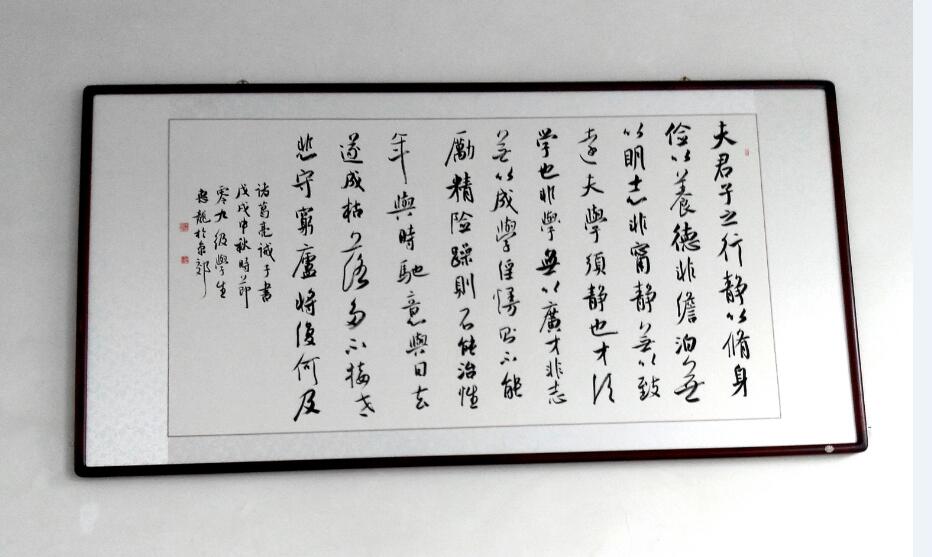 夫君子之行静以脩身
俭以养德非澹泊无
以明志非甯静无以致
远夫學须静也才须
学也非學無以廣才非志
无以成學淫慢则不能
勵精险躁則不能治性
年與時馳意與日去
遂成枯落多不接世
悲守窮廬將復何及
诸葛亮诫子書
戊戌中秋時節
零九级學生
於京郊